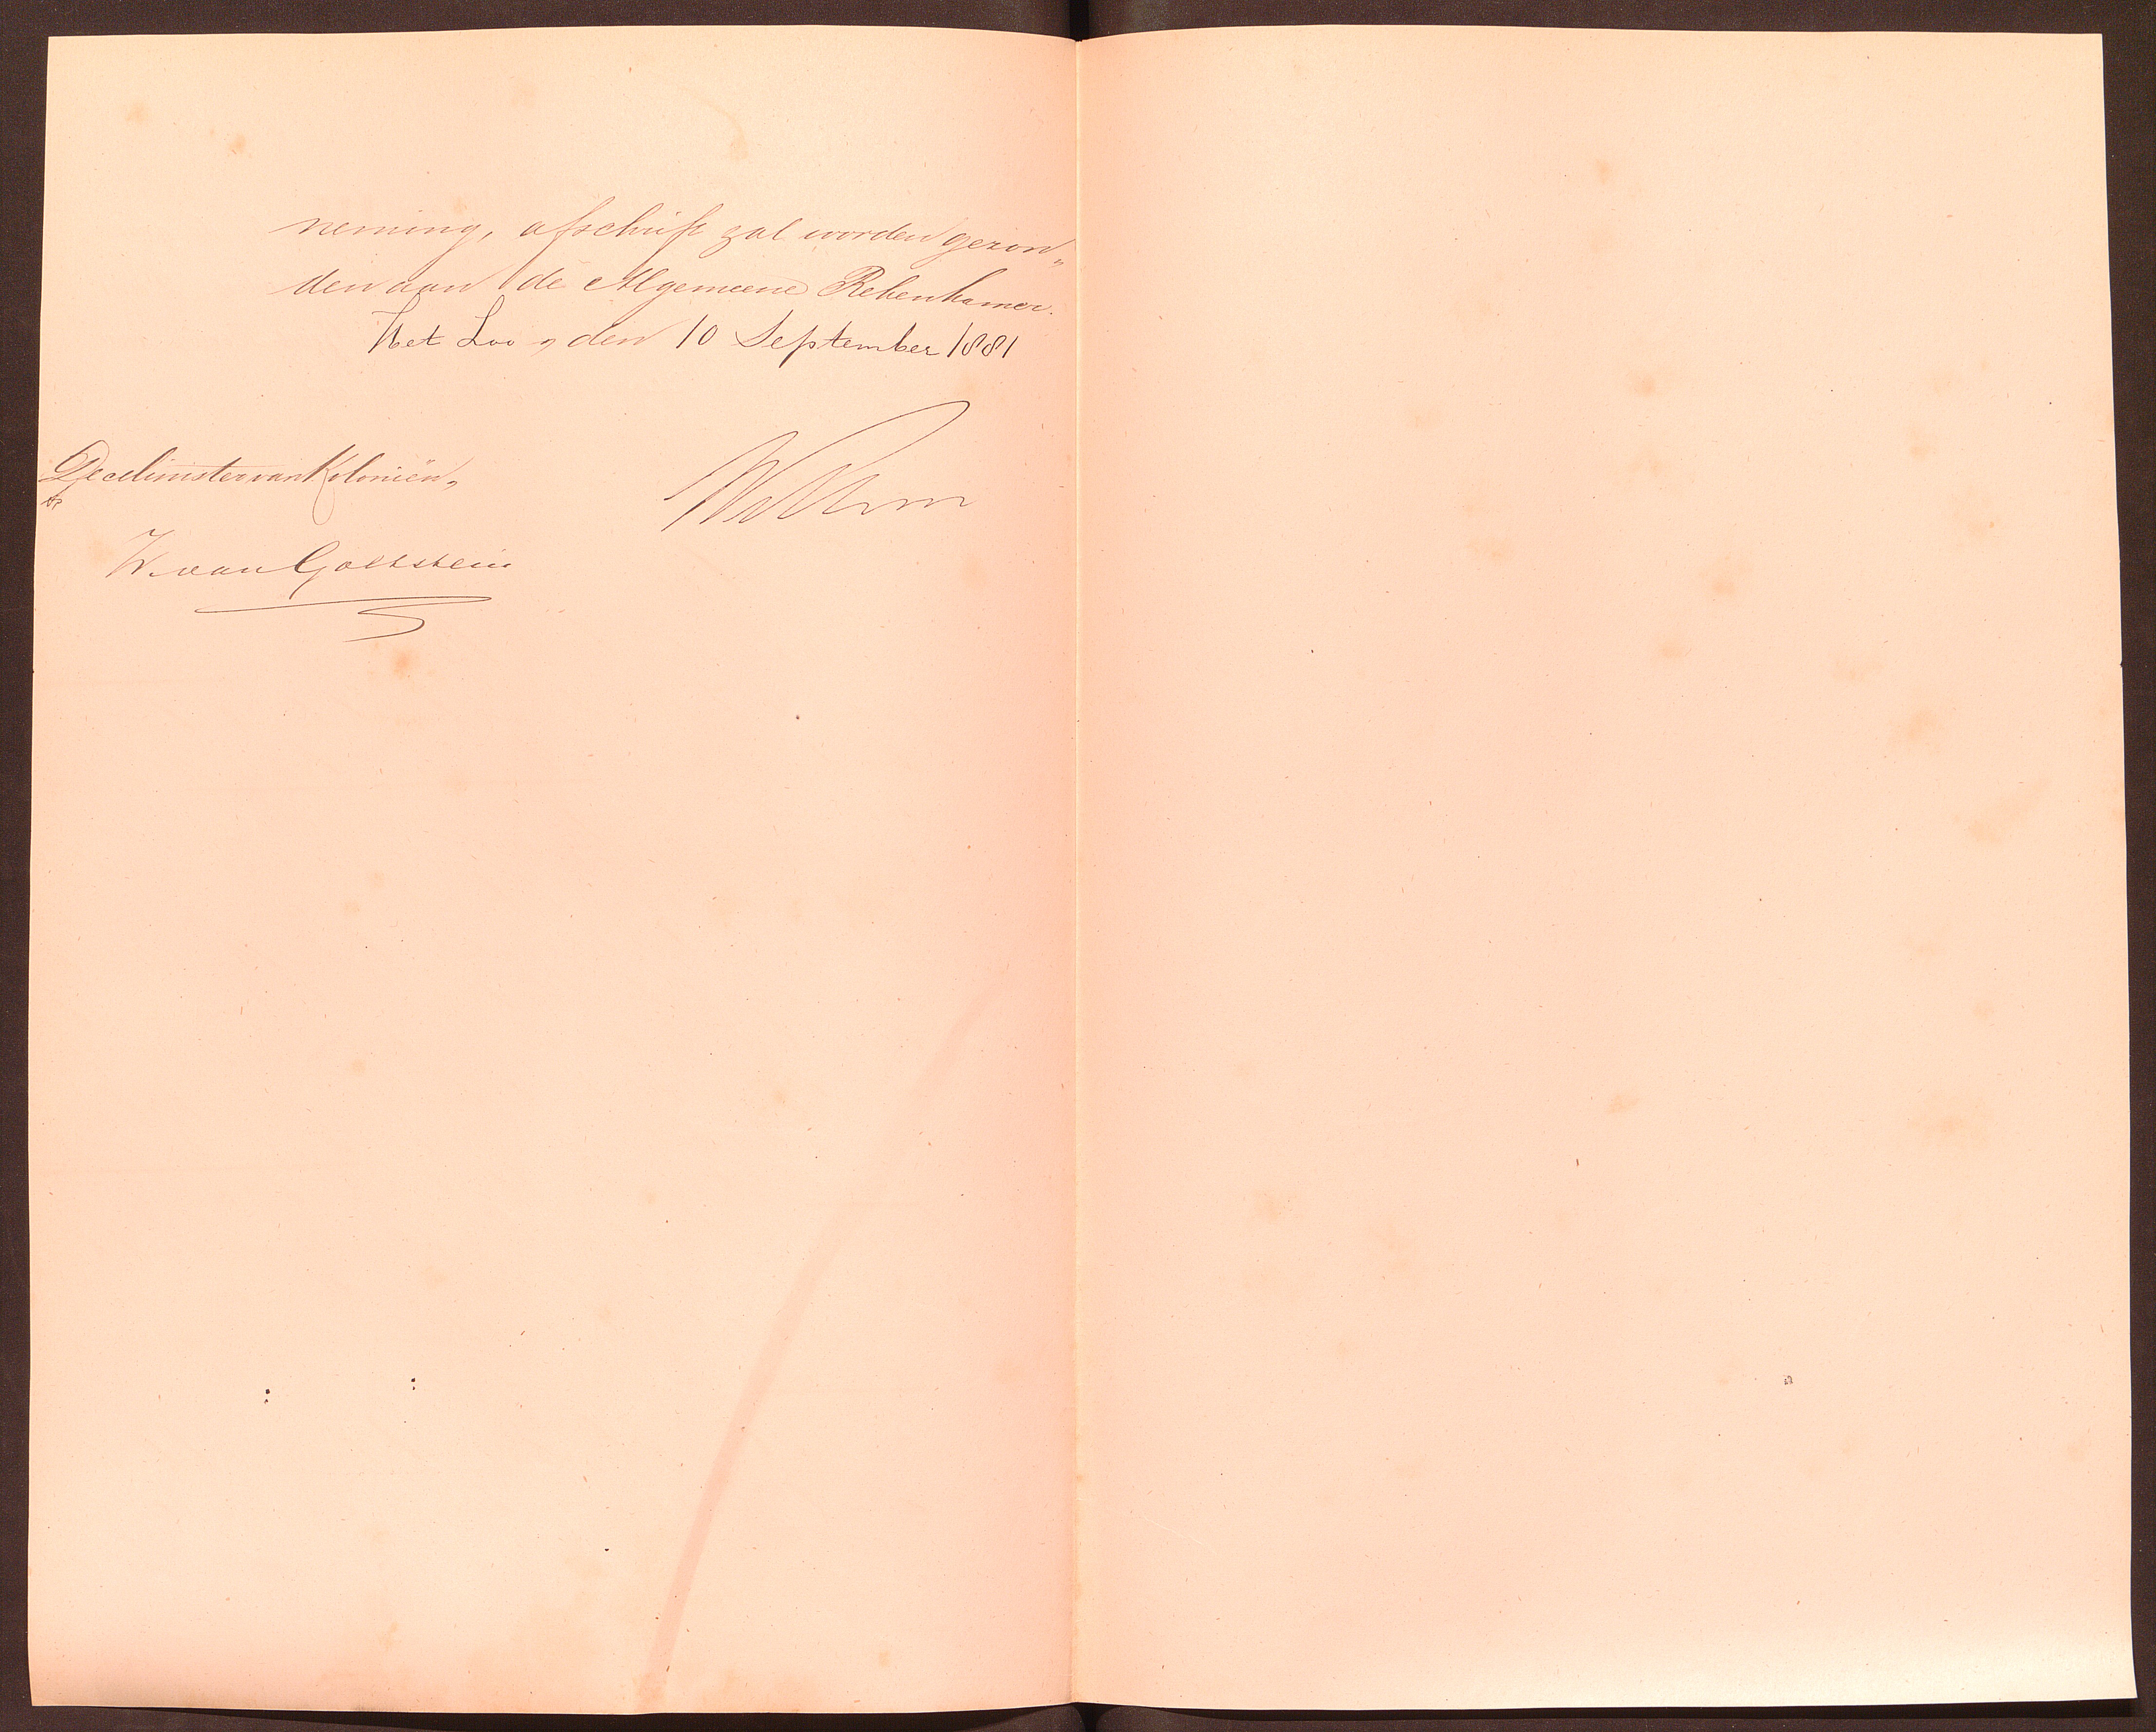 neming, afschrift zal worden gezon„
den aan de Algemeene Rekenkamer.
Het Loo, den 10 September 1881
De Minister van Koloniën,
Willem
W. van Goltstein